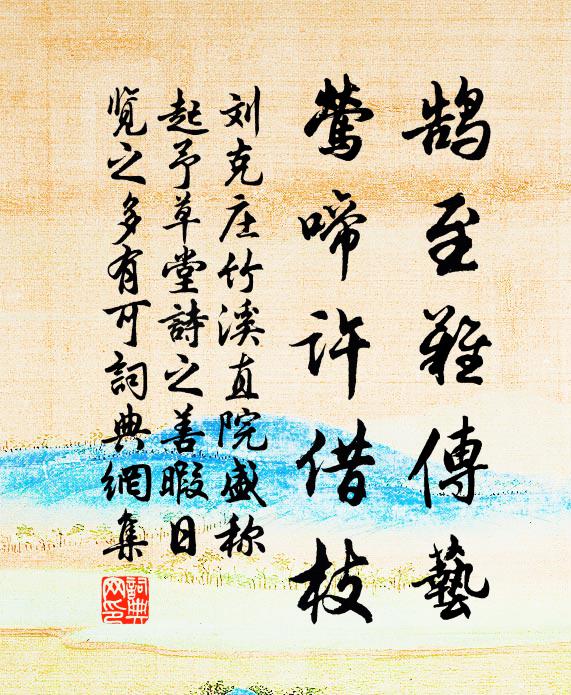 鹄至難傳藝
莺啼许借枝
刘克庄竹溪直院盛称
起予草堂詩之善暇日
览之多有可詞典網集
詞典网印